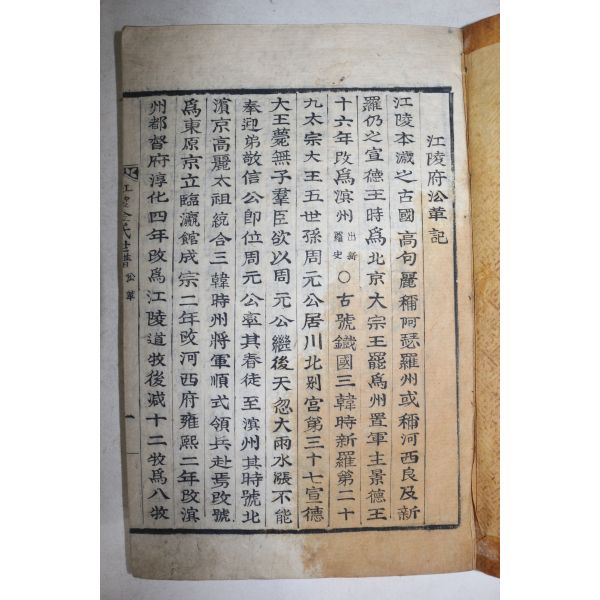 江陵府沿革記
江陵本濊之古國高句麗稱阿瑟羅州或稱河西良及新
羅仍之宣德王時爲北京大宗王罷爲州置軍主景德王
十六年改爲溟州出新羅史○古號鐵國三韓時新羅第二十
九太宗大王五世孫周元公居川北別宮第三十七宣德
大王薨無子羣臣欲以周元公繼後天忽大雨水漲不能
奉迎弟敬信公卽位周元公率其眷徒至溟州其時號北
濱京高麗太祖統合三韓時州將軍順式領兵赴焉改號
爲東原京立臨瀛館成宗二年改河西府雍熙二年改溟
州都督府淳化四年改爲江陵道牧後减十二牧爲八牧
江陵金氏世譜 沿革 一